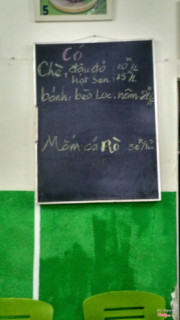 5
Có
Chè, đậu đỏ 10
hạt sen, 15
bánh, bèo Lọc. nậm.
Mắm cá Rò